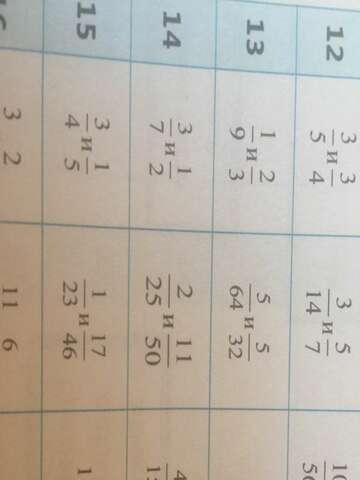 12 3/5 и 3/4 3/14 и 5/7
13 1/9 и 2/3 5/64 и 5/32
14 3/7 и 1/2 2/25 и 11/50
15 3/4 и 1/5 1/23 и 17/46
3 2 11 6